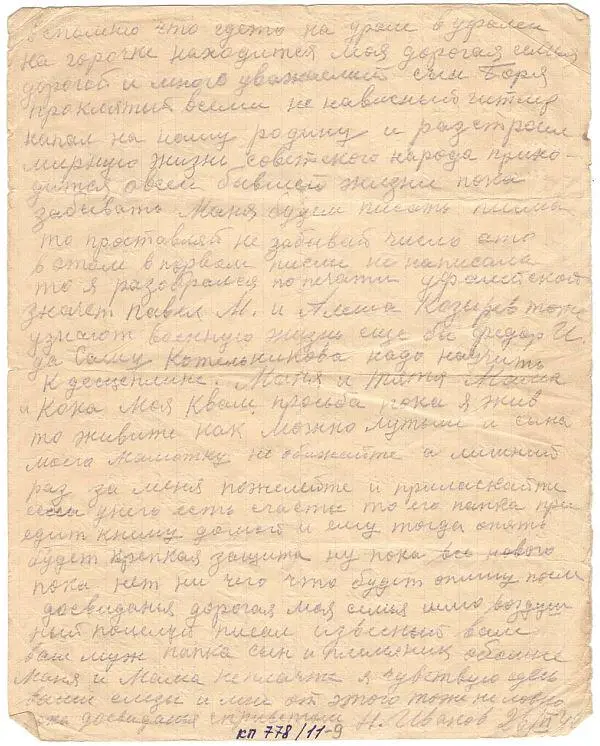 вспомню что гдето на урале в уфалеи
на горочке находится моя дорогая семия
дорогой и много уважаемый сын Боря
проклятый всеми не нависный гитлер
напал на нашу родину и разстроил
мирную жизнь советского народа прихо-
дится овсей бывшей жизни пока
забывать Маня будеш писать писма
то проставляй не забывай число ато
в этом впервом писме не написала
то я разобрался попечати уфалейской
значет Павел М. и Алеша Козырев тоже
узнают военную жизнь еще бы Федор И.
да Сашу Котельникова надо научить
к десцеплине. Маня и тятя Мама
и Кока Моя Квам прозьба пока я жив
то живите как можно лутьши и сына
моего не обижайте а лишний
раз за меня пожелейте и приласкайте
если унего есть счастье то его папка при
едит кнему домой и ему тогда опять
будет крепкая защита ну пока все нового
пока нет ни чего что будет опишу посл
досвидания дорогая моя семия шлю воздуш
ный поцелуй писал известный вам
ваш муж папка сын и племяник обомне
Маня и Мама неплачте я чувствую здесь
ваши слезы и мне от этого тоже не ловко
досвидания сприветом Н. Иванов 42
КП 778/11-9